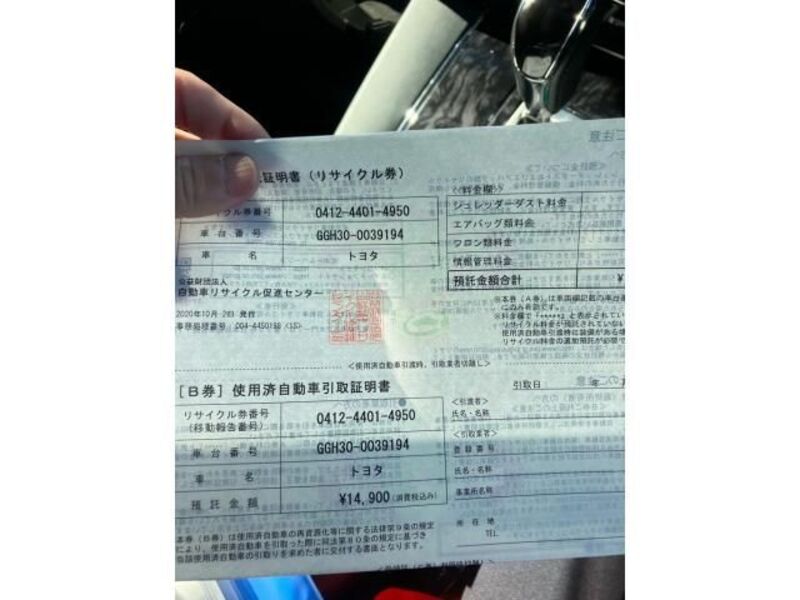 証明書（リサイクル券）
クル券番号 0412-4401-4950
車台番号 GGH30-0039194
車名 トヨタ
公益財団法人
自動車リサイクル促進センター
2020年10月 2日 発行
事務処理番号
《料金欄》
シュレッダーダスト料金
エアバッグ類料金
フロン類料金
情報管理料金
預託金額合計 ¥
＜使用済自動車引渡時、引取業者切離し＞
［B券］使用済自動車引取証明書
リサイクル券番号
（移動報告番号） 0412-4401-4950
車台番号 GGH30-0039194
車名 トヨタ
預託金額 ¥14,900（消費税込み）
本券（B券）は使用済自動車の再資源化等に関する法律第9条の規定
により、使用済自動車を引取った際に同法第80条の規定に基づき
当該使用済自動車の引取りを求めた者に交付する書面となります。
引取日 年
＜引渡者＞
氏名・名称
＜引取業者＞
登録番号
氏名・名称
事業所名称
所在地
TEL